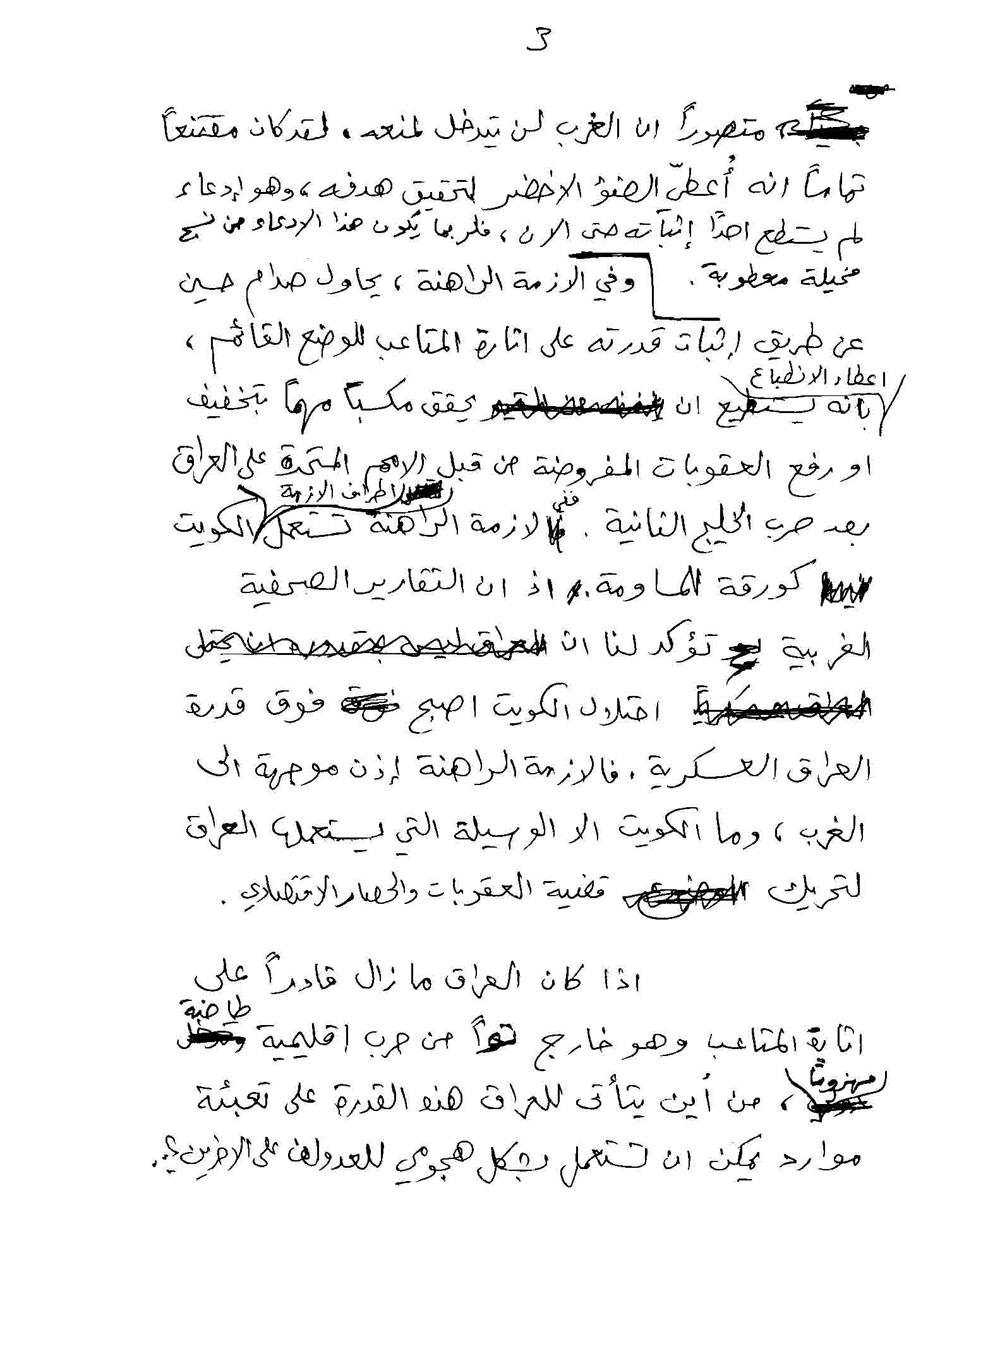 3
متصوراً ان الغرب لن يتدخل لمنعه، لقد كان مقتنعاً
تماماً انه أُعطيّ الضوء الاخضر لتحقيق هدفه، وهو إدعاء
لم يستطع احداً إثباته حتى الان، فلربما يكون هذا الادعاء من نسج
مخيلة معطوبة. وفي الازمة الراهنة، يحاول صدام حسين
عن طريق إثبات قدرته على اثارة المتاعب للوضع القائم،
اعطاء الانطباع
بانه يستطيع ان يحقق مكسباً مهماً بتخفيف
او رفع العقوبات المفروضة من قبل الامم المتحدة على العراق
اطراف الازمة
بعد حرب الخليج الثانية. ففي الازمة الراهنة تستعمل الكويت
كورقة للمساومة. اذ ان التقارير الصحفية
الغربية تؤكد لنا ان
احتلال الكويت اصبح فوق قدرة
العراق العسكرية. فالازمة الراهنة إذن موجهة الى
الغرب، وما الكويت الا الوسيلة التي يستعملها العراق
لتحريك قضية العقوبات والحصار الاقتصادي.
اذا كان العراق ما زال قادراً على
طاحنة
اثارة المتاعب وهو خارج تواً من حرب اقليمية
مهزوماً
، من أين يتأتى للعراق هذه القدرة على تعبئة
موارد يمكن ان تستعمل بشكل هجومي للعدوان على الاخرين؟.